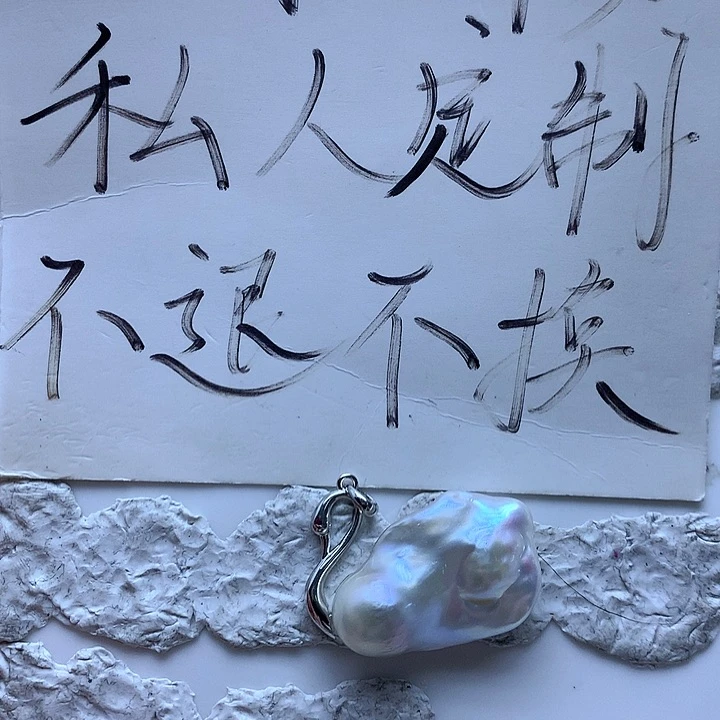 私人定制
不退不换